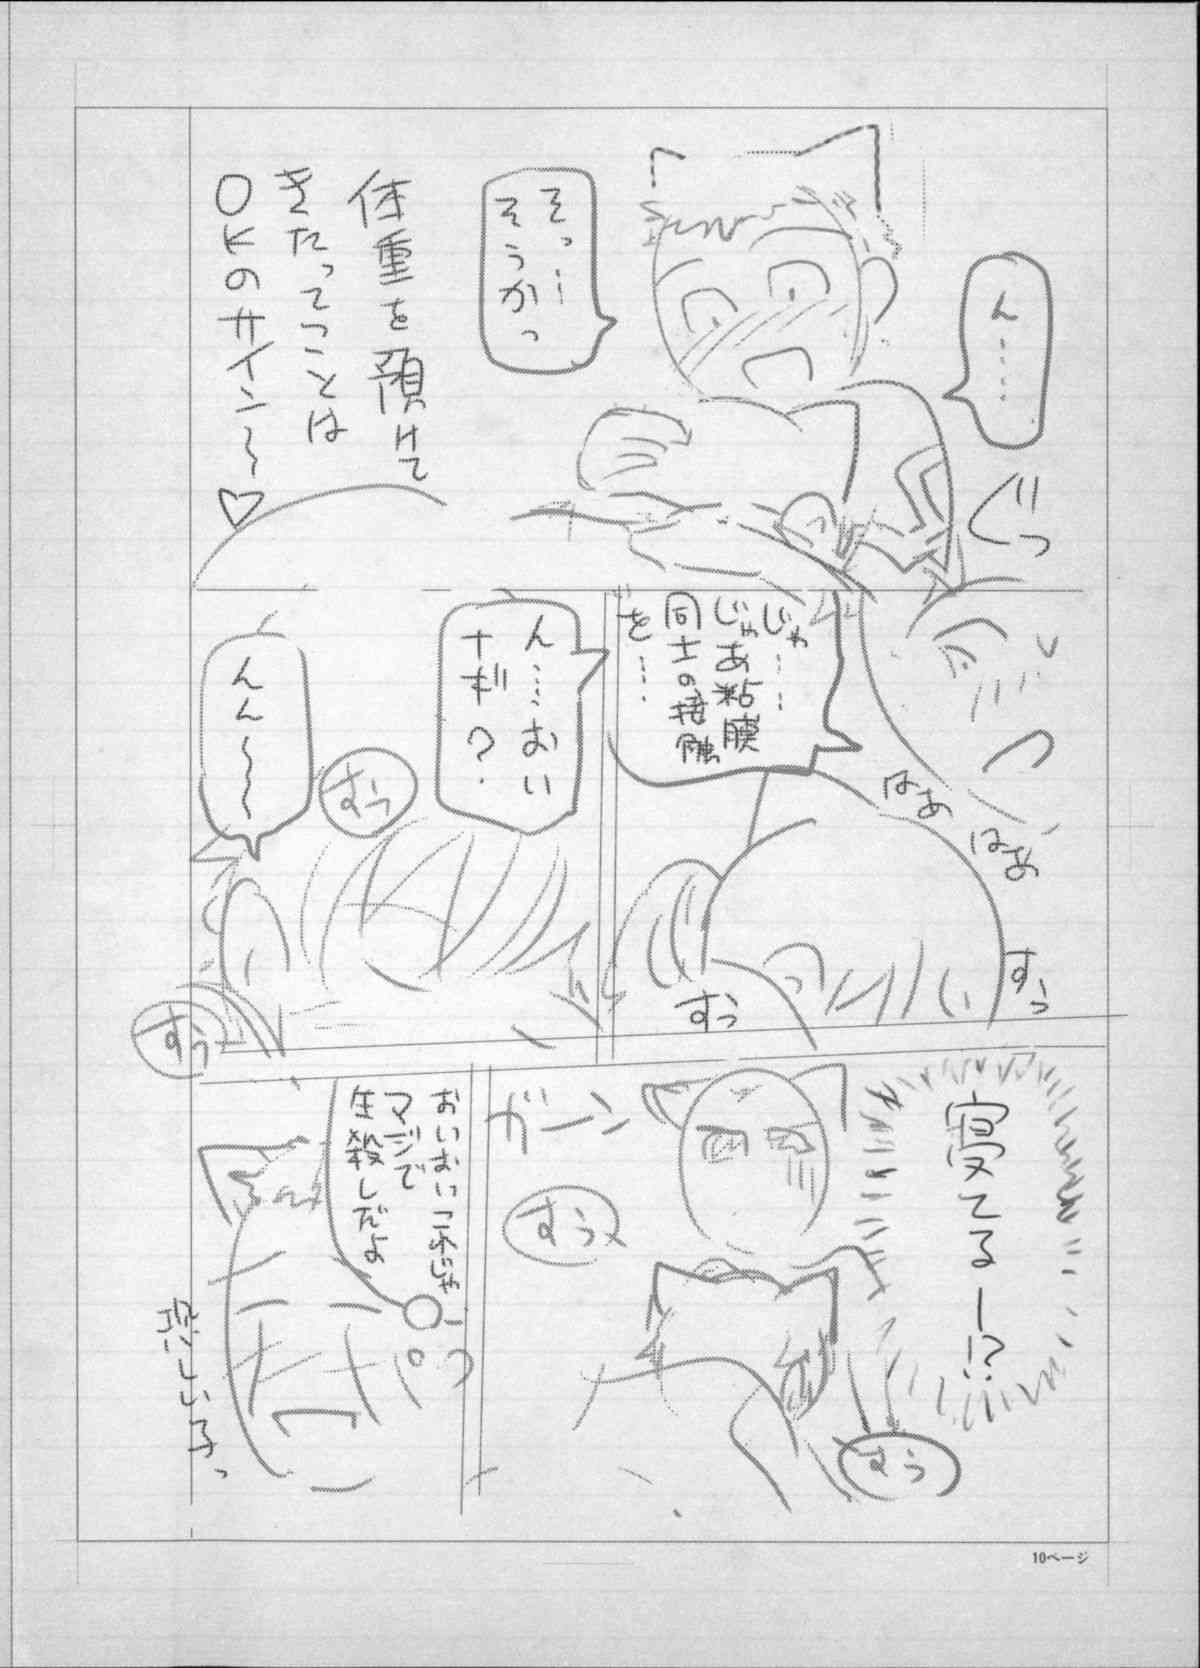 ん……
ぐっ
そっ…
そうかっ
体重を預けて
きたってことは
OKのサイン～♡
じゃ……
じゃあ粘膜
同士の接触
を……
はあ
はあ
すっ
すうっ
ん……おい
ナギ？
すうっ
んん～～～
すうっ
寝てるー!?
すう
ガーン
すうっ
おいおいこれじゃ
マジで
生殺しだよ
悲しい子っ
10ページ